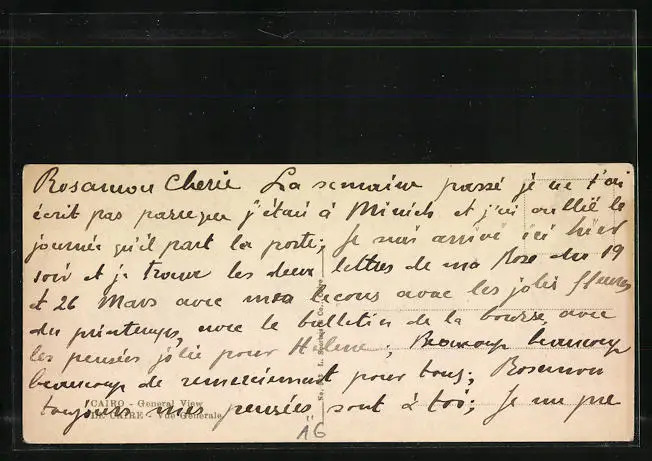 Rosamon Cherie La semaine passé je ne t'ai
écrit pas parseque j'étai à Minieh et j'ai oullié le
journée qu'il part la poste; Je suis arrivé ici hier
soir et je trouve les deux lettres de ma Rose du 19
et 26 Mars avec mes leçons avac les jolis fleures
du printemps, avec le bulletin de la bourse avec
les pensées jolie pour Helene; Beacoup beaucoup
beaucoup de remerciement pour tous; Rosamon
toujours mes pensées sont à toi; Je me pre
CAIRO - General View
LE CAIRE - Vue Générale
AG